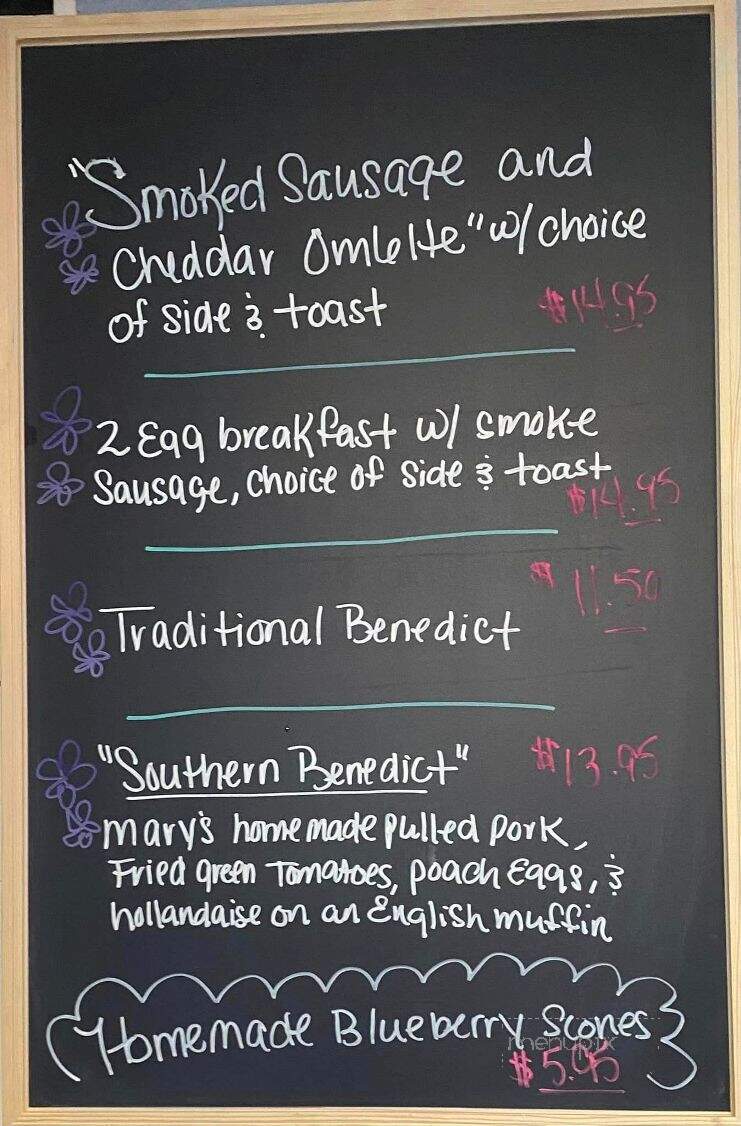 "Smoked Sausage and
Cheddar Omlette" w/ choice
of side & toast $14.95
2 Egg breakfast w/ smoke
Sausage, choice of side & toast
$14.95
$11.50
Traditional Benedict
"Southern Benedict" $13.95
Mary's homemade pulled pork,
Fried green Tomatoes, poach Eggs, &
hollandaise on an English muffin
Homemade Blueberry Scones
menupix
$5.95